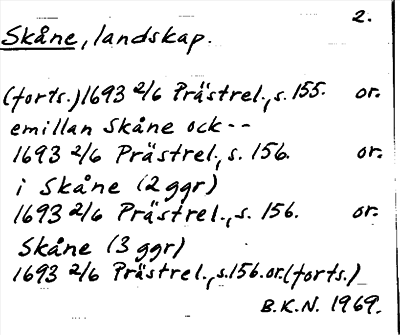 2.
Skåne, landskap.
(forts.) 1693 2/6 Prästrel., s. 155. or.
emillan Skåne ock --
1693 2/6 Prästrel., s. 156. or.
i Skåne (2 ggr)
1693 2/6 Prästrel., s. 156. or.
Skåne (3 ggr)
1693 2/6 Prästrel., s. 156. or. (forts.)
B.K.N. 1969.